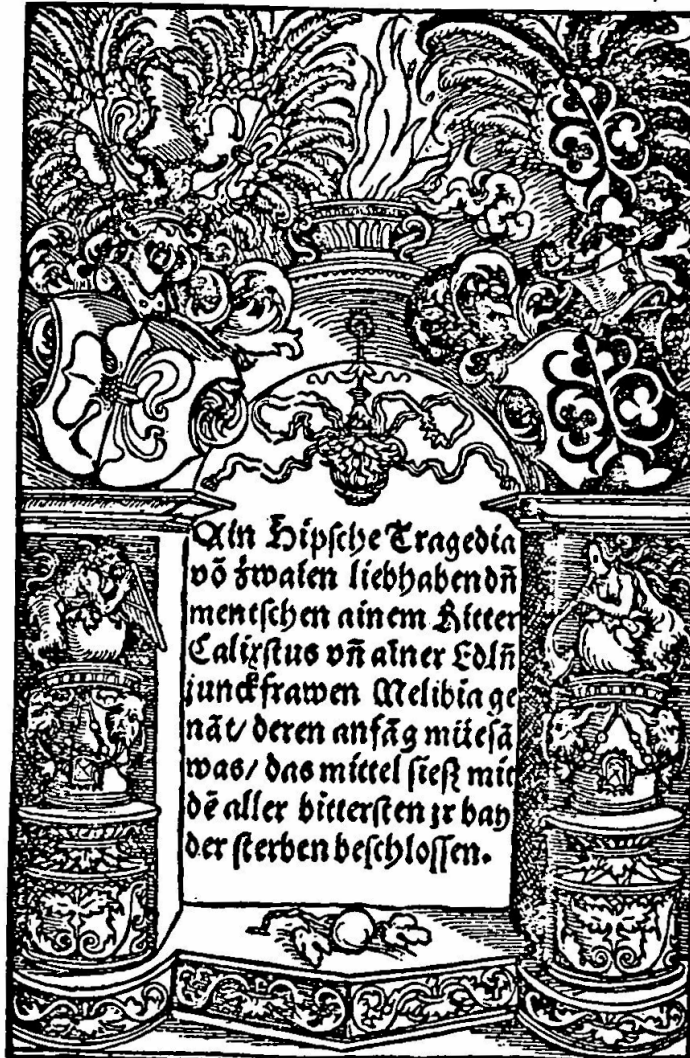 Ain Hipsche Tragedia
võ zwaien liebhabendñ
mentschen ainem Ritter
Calixstus vñ ainer Edlñ
junckfrawen Melibia ge
nãt/ deren anfãg müesã
was/ das mittel sieß mit
dẽ aller bittersten jr bay
der sterben beschlossen.